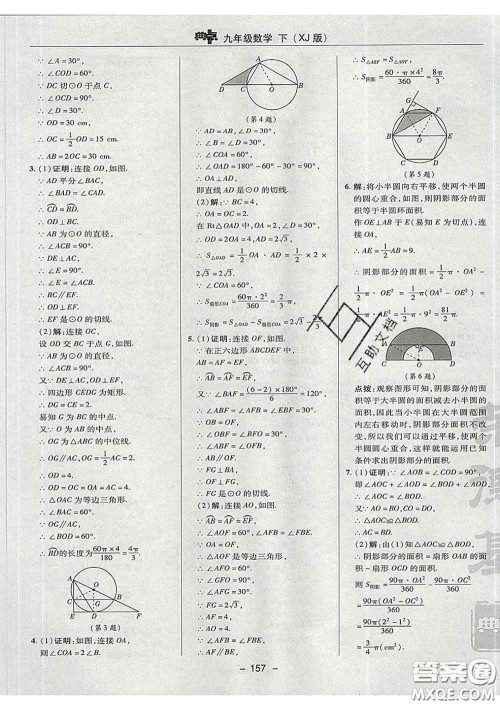 典点 九年级数学 下(XJ版)
∵∠A=30°,
∴∠COD=60°.
∵DC切⊙O于点C,
∴∠OCD=90°.
∴∠D=30°.
∵OD=30 cm,
∴OC=1/2OD=15 cm.
3.(1)证明:连接OD,如图.
∵AD平分∠BAC,
∴∠BAD=∠CAD.
∴CD=BD.
∵AB为⊙O的直径,
∴∠ACB=90°.
∵BC∥EF,
∴OD⊥EF.
∴EF是⊙O的切线.
(2)解:连接OC,
设OD交BC于点G,如图.
∵∠ACB=∠OGB=90°,
∴AC∥OD.
又∵DE=AC=4,
∴四边形CEDG为矩形.
易知G为BC的中点.
又∵O为AB的中点,
∴OG为△ABC的中位线.
∴OG∥AC,
∴OD=4.
又∵AC=4,
∴△OAC为等边三角形.
又∵OG∥AC,
∴∠BOG=∠BAC=60°.
∴BD的长度为60π×4/180=4π/3.
(第3题)
4.(1)证明:如图,连接OA,
则∠COA=2∠B.
(第4题)
∵AD=AB,
∴∠B=∠D=30°.
∴∠COA=60°.
∴∠OAD=180°-60°-30°=90°.
∴OA⊥AD.
即直线AD是⊙O的切线.
(2)解:∵BC=4,
∴OA=OC=2.
在Rt△OAD中,OA=2,
∠D=30°,
∴OD=2OA=4,AD=2√3.
∴S△OAD=1/2OA·AD=1/2×2×
2√3=2√3.
∵∠COA=60°,
∴S扇形COA=60π·2²/360=2/3π.
∴S阴影=S△OAD-S扇形COA=2√3-2π/3
5.(1)证明:连接OF,如图.
∵在正六边形ABCDEF中,
AB=AF,
∴∠ABF=∠AFB.
又∠BAF=(6-2)×180°/6
=120°,
∴∠ABF=30°.
∵OB=OF,
∴∠OBF=∠BFO=30°.
∴∠ABF=∠BFO.
∴AB∥OF.
∵FG⊥BA,
∴OF⊥FG.
∴FG是⊙O的切线.
(2)解:∵AB=AF,
∴AB=AF=EF.
∴∠AOF=∠AFB=∠FBE.
又∵OA=OF,
∴△AOF是等边三角形.
∴∠AFO=60°.
∴∠AFG=30°.
∵FG=2√3,
∴AF=4.
∴AO=4.
∵∠AFB=∠FBE,
∴AF∥BE.
∴S△ABF=S△AOF.
∴S阴影=60·π×4²/360=8π/3.
(第5题)
6.解:将小半圆向右平移,使两个半圆的圆心重合,如图,则阴影部分的面积等于半圆环面积.
作OE⊥AB于E(易知E为切点),
连接OA,
∴AE=1/2AB=9.
∴阴影部分的面积=1/2π·OA²-
1/2π·OE²=1/2π·(OA²-OE²)=
1/2π·AE²=1/2π·9²=81/2π.
(第6题)
点拨:观察图形可知,阴影部分的面积等于大半圆的面积减去小半圆的面积,因此当小半圆在大半圆范围内左右移动时,阴影部分面积不变.所以我们可以通过平移,使两个半圆的圆心重合,这样就能运用已知条件求出阴影部分的面积.
7.(1)证明:∵∠AOB=∠COD=90°,
即∠AOC+∠AOD=∠BOD+∠AOD,
∴∠AOC=∠BOD.
∵AO=BO,CO=DO,
∴△AOC≌△BOD.
(2)解:由(1)知△AOC≌△BOD,
∴阴影部分的面积=扇形OAB的面积-扇形OCD的面积.
则S阴影=90π·OA²/360-90π·OC²/360
=90π(OA²-OC²)/360
=90π(2²-1²)/360
=3/4π(cm²).
互助文档
典
答案圈
MXQE.COM
- 157 -